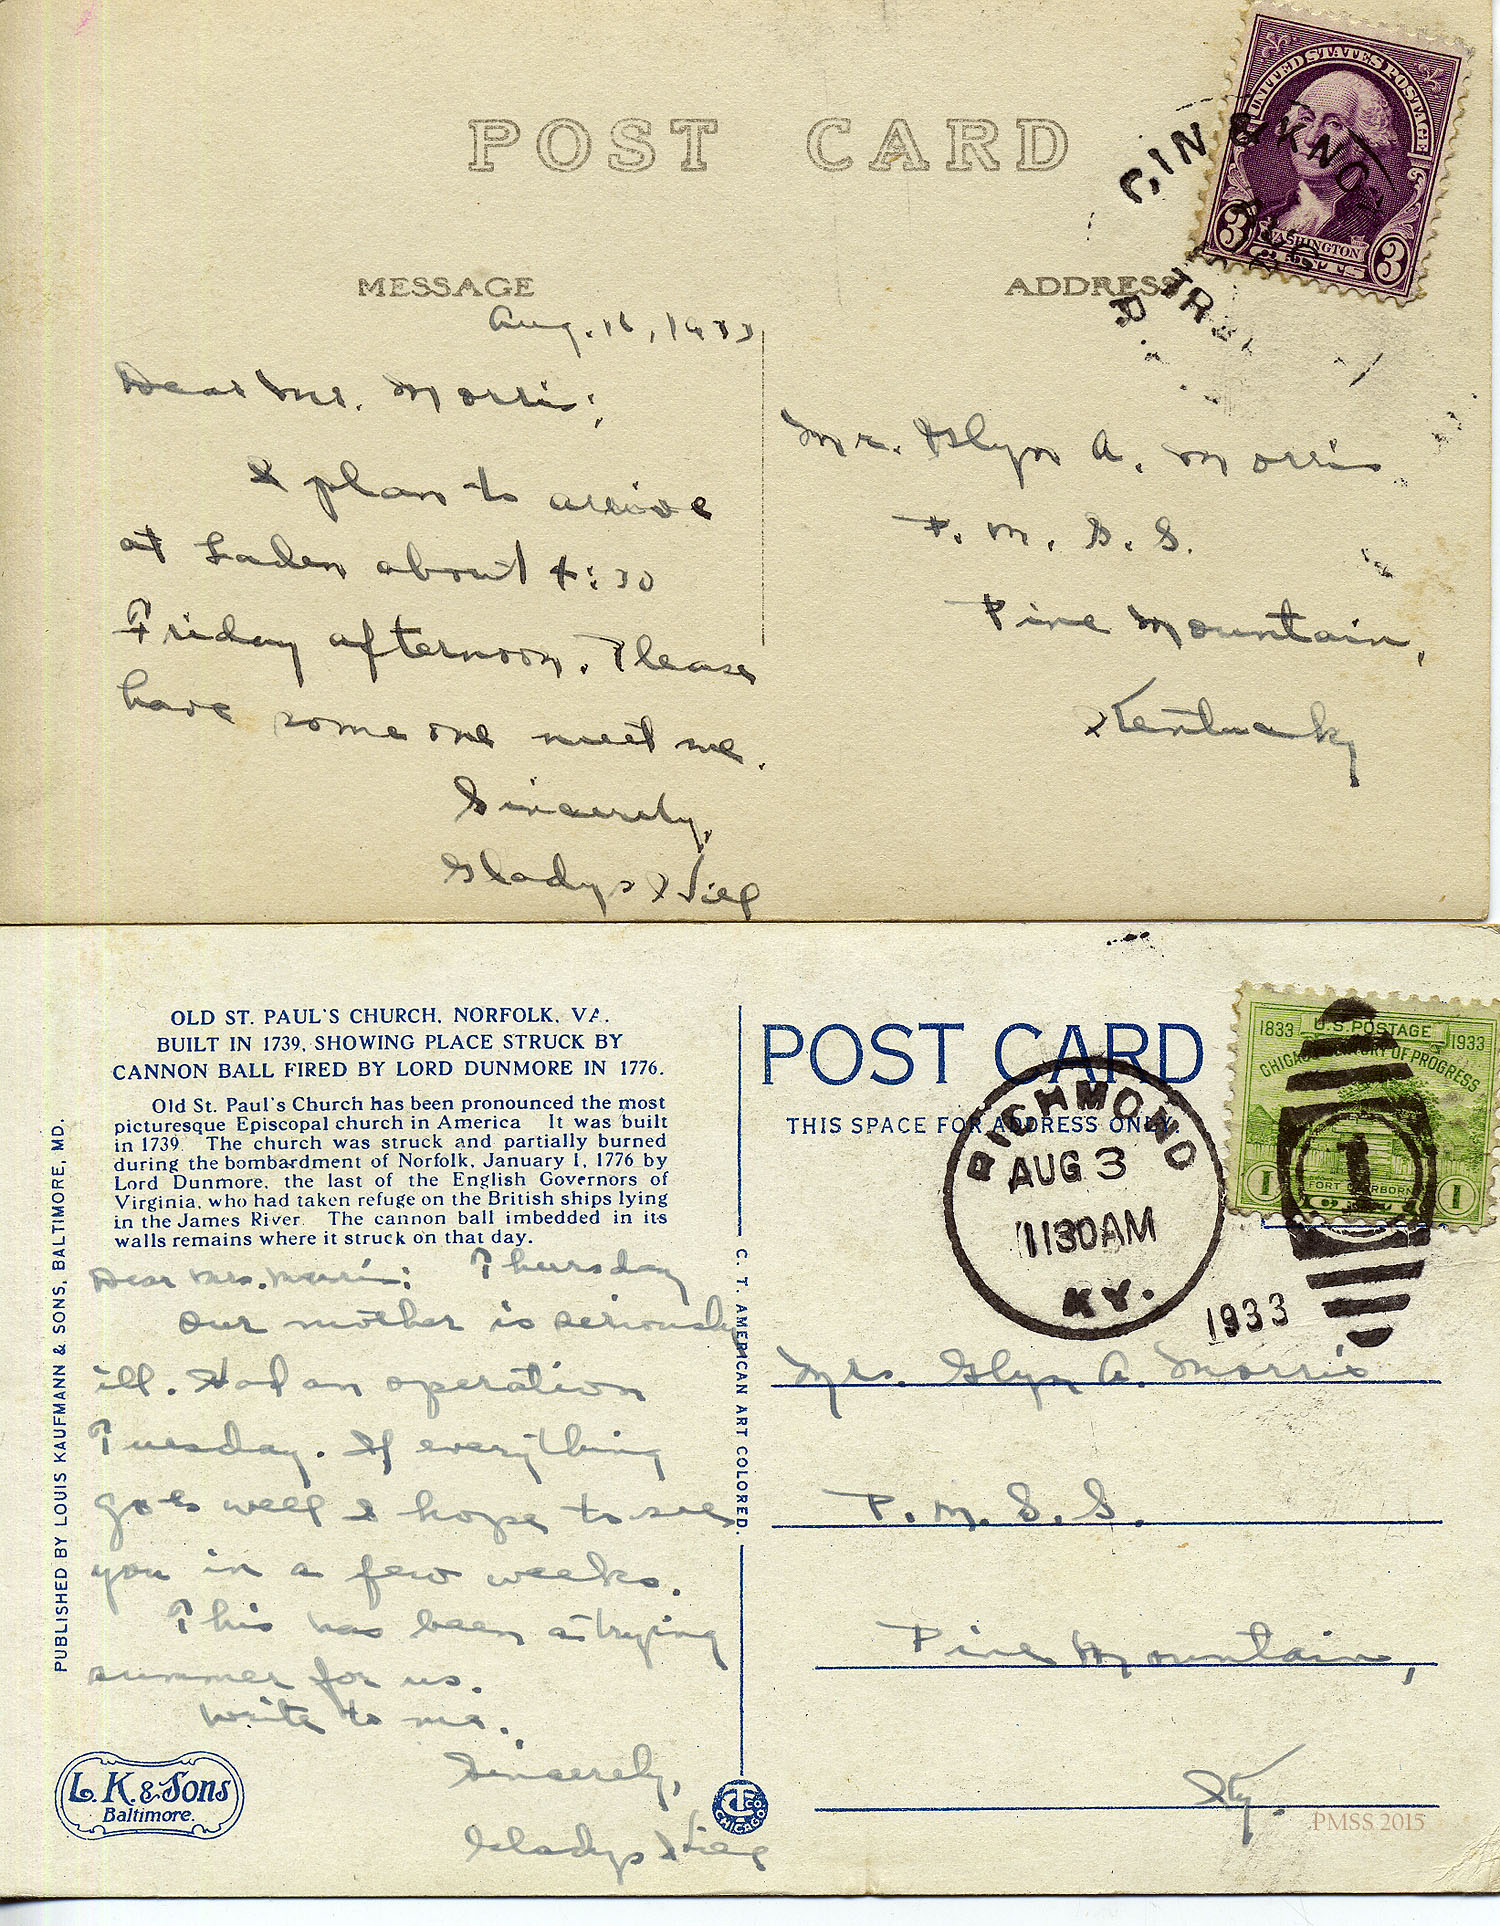 POST CARD
UNITED STATES POSTAGE
WASHINGTON
3 CENTS 3
CIN & KNOX
AUG
TR
R.
MESSAGE
ADDRESS
Aug. 16, 1933
Dear Mr. Morris:
I plan to arrive
at Laden about 4:30
Friday afternoon. Please
have some one meet me.
Sincerely,
Gladys Hill
Mr. Glyn A. Morris
P. M. S. S.
Pine Mountain,
Kentucky
OLD ST. PAUL'S CHURCH, NORFOLK, VA.
BUILT IN 1739, SHOWING PLACE STRUCK BY
CANNON BALL FIRED BY LORD DUNMORE IN 1776.
Old St. Paul's Church has been pronounced the most
picturesque Episcopal church in America It was built
in 1739. The church was struck and partially burned
during the bombardment of Norfolk, January 1, 1776 by
Lord Dunmore, the last of the English Governors of
Virginia, who had taken refuge on the British ships lying
in the James River. The cannon ball imbedded in its
walls remains where it struck on that day.
Dear Mrs. Morris: Thursday
Our mother is seriously
ill. Had an operation
Tuesday. If everything
goes well I hope to see
you in a few weeks.
This has been a trying
summer for us.
Write to me.
Sincerely,
Gladys Hill
PUBLISHED BY LOUIS KAUFMANN & SONS, BALTIMORE, MD.
L. K. & Sons
Baltimore.
C. T. AMERICAN ART COLORED.
CT CO.
CHICAGO
POST CARD
THIS SPACE FOR ADDRESS ONLY
RICHMOND
AUG 3
1130AM
KY.
1933
1833 U.S. POSTAGE 1933
CHICAGO CENTURY OF PROGRESS
FORT DEARBORN
1 CENT 1
1
Mrs. Glyn A. Morris
P. M. S. S.
Pine Mountain,
Ky.
PMSS 2015